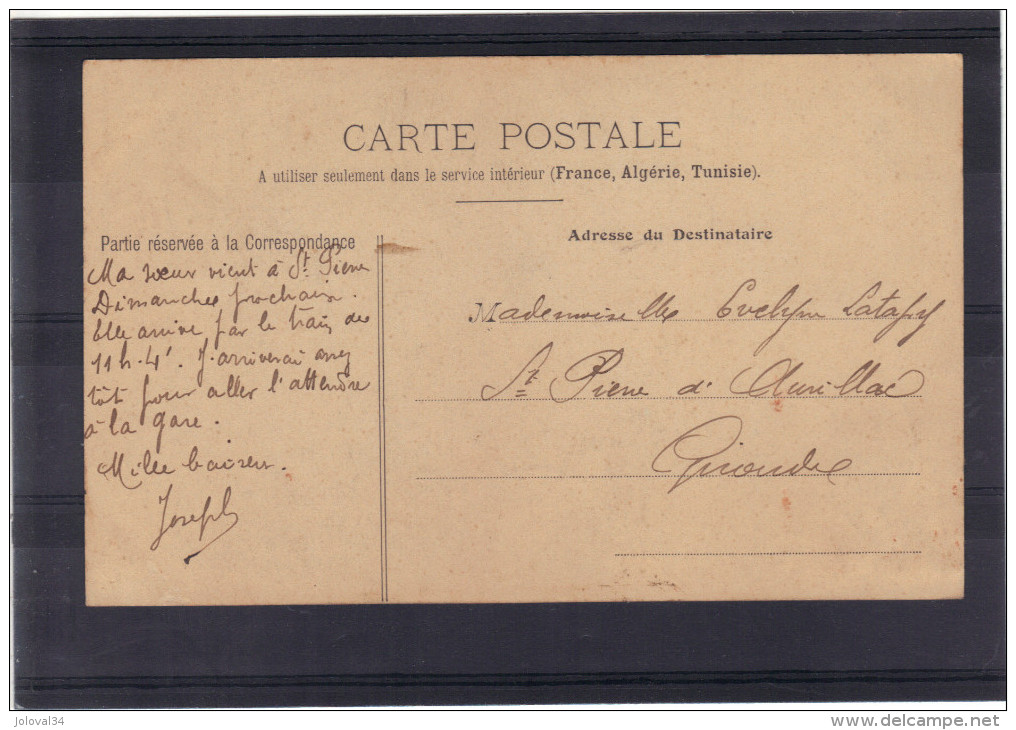 CARTE POSTALE
A utiliser seulement dans le service intérieur (France, Algérie, Tunisie).
Partie réservée à la Correspondance
Ma sœur vient à St Pierre
Dimanche prochain.
Elle arrive par le train de
11h.4'. J'arriverai assez
tôt pour aller l'attendre
à la gare.
Mille baisers.
Joseph
Adresse du Destinataire
Mademoiselle Evelyne Latapy
St Pierre d'Aurillac
Gironde
joloval34
www.delcampe.net